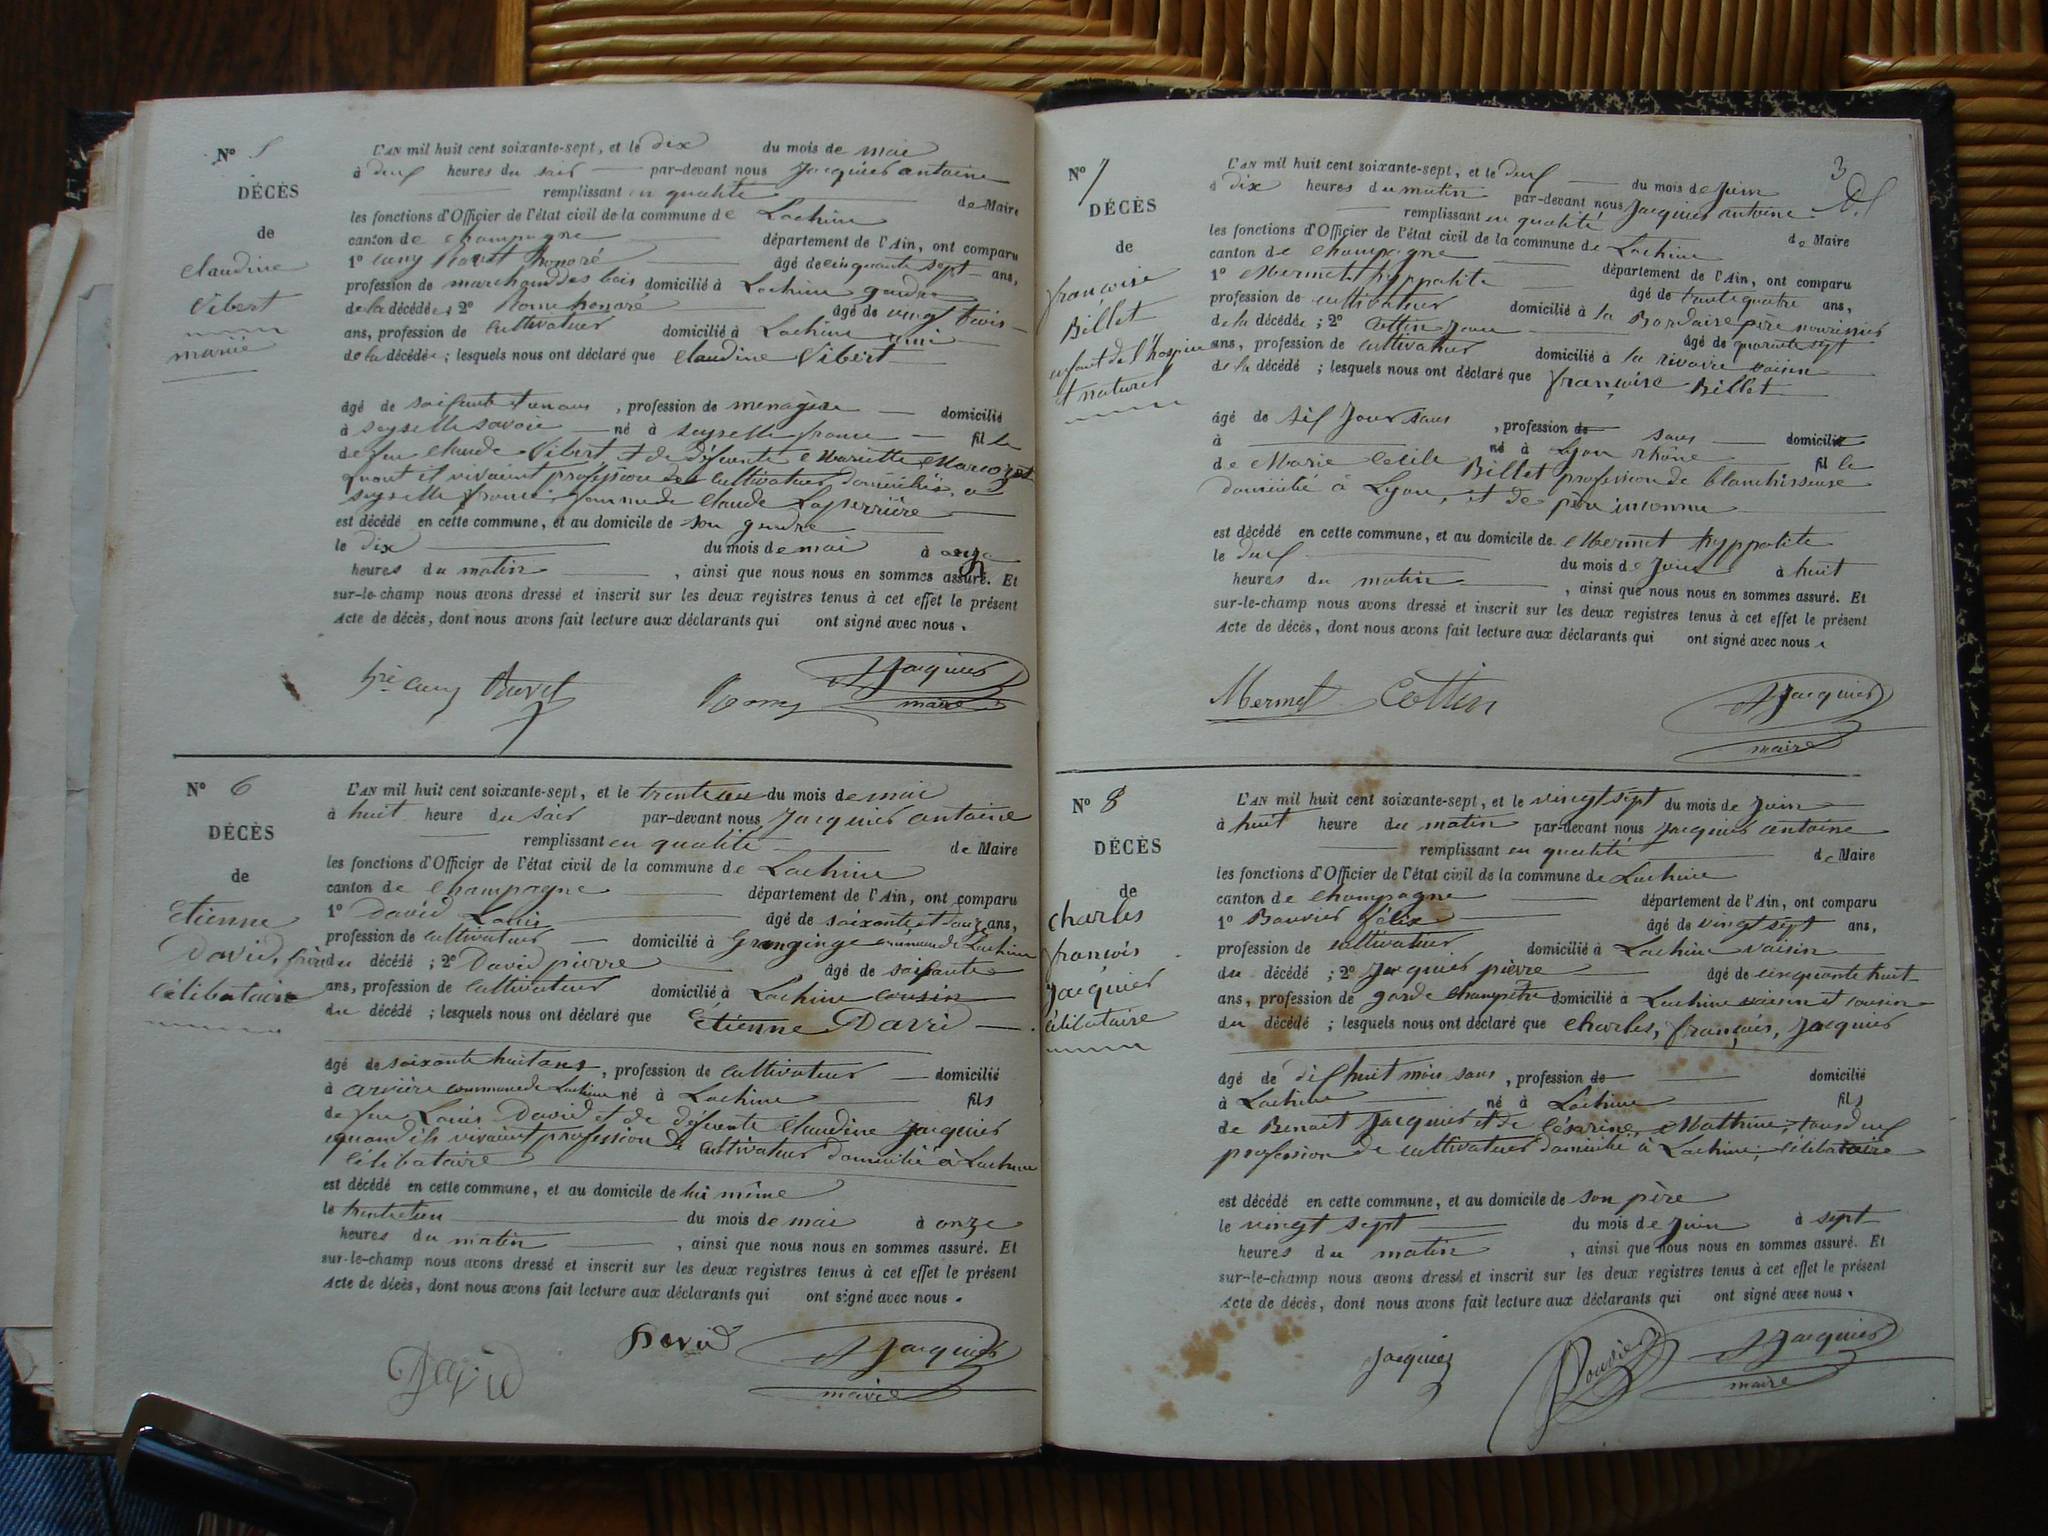 N° 5
DÉCÈS
de
Claudine
Vibert
mariée
L'AN mil huit cent soixante-sept, et le dix du mois de mai
à deux heures du soir par-devant nous Jacquier antoine
remplissant en qualité de Maire
les fonctions d'Officier de l'état civil de la commune de Lochieu
canton de champagne département de l'Ain, ont comparu
1° honoré âgé de cinquante sept ans,
profession de marchand des bois domicilié à Lochieu gendre
de la décédée ; 2° honoré âgé de vingt trois
ans, profession de cultivateur domicilié à Lochieu ami
de la décédée ; lesquels nous ont déclaré que Claudine Vibert
âgé de soixante et un ans , profession de menagère domicilié
à seyssell savoie né à seyssell france fille
de feu claude Vibert et de défunte Mariette
quant il vivaient profession de cultivateur domiciliés a
seyssell france, femme de claude Laperrière
est décédé en cette commune, et au domicile de son gendre
le dix du mois de mai à onze
heures du matin , ainsi que nous nous en sommes assuré. Et
sur-le-champ nous avons dressé et inscrit sur les deux registres tenus à cet effet le présent
Acte de décès, dont nous avons fait lecture aux déclarants qui ont signé avec nous.
Jacquier
maire
N° 6
DÉCÈS
de
Etienne
David, frère
célibataire
L'AN mil huit cent soixante-sept, et le trente un du mois de mai
à huit heure du soir par-devant nous Jacquier antoine
remplissant en qualité de Maire
les fonctions d'Officier de l'état civil de la commune de Lochieu
canton de champagne département de l'Ain, ont comparu
1° David Louis âgé de soixante et douze ans,
profession de cultivateur domicilié à Granginge commune de Lochieu
du décédé ; 2° David pierre âgé de soixante
ans, profession de cultivateur domicilié à Lochieu cousin
du décédé ; lesquels nous ont déclaré que Etienne David
âgé de soixante huit ans , profession de cultivateur domicilié
à arvière commune de Lochieu né à Lochieu fils
de feu Louis David et de défunte Claudine Jacquier
quand ils vivaient profession de cultivateur domicilié à Lochieu
célibataire
est décédé en cette commune, et au domicile de lui même
le trente un du mois de mai à onze
heures du matin , ainsi que nous nous en sommes assuré. Et
sur-le-champ nous avons dressé et inscrit sur les deux registres tenus à cet effet le présent
Acte de décès, dont nous avons fait lecture aux déclarants qui ont signé avec nous.
David David Jacquier
maire
3
N° 7
DÉCÈS
de
françoise
Billet
enfant de l'hospice
et naturel
L'AN mil huit cent soixante-sept, et le deux du mois de Juin
à dix heures du matin par-devant nous Jacquier antoine
remplissant en qualité de Maire
les fonctions d'Officier de l'état civil de la commune de Lochieu
canton de champagne département de l'Ain, ont comparu
1° Mermet hyppolite âgé de trente quatre ans,
profession de cultivateur domicilié à la père nourissier
de la décédée ; 2° Cottin Jean âgé de quarante sept
ans, profession de cultivateur domicilié à la rivoire voisin
de la décédé ; lesquels nous ont déclaré que françoise Billet
âgé de six Jour sans , profession de sans domicilié
à né à Lyon rhône fille
de Marie Cecile Billet profession de blanchisseuse
domicilié à Lyon, et de père inconnu
est décédé en cette commune, et au domicile de Mermet hyppolite
le deux du mois de Juin à huit
heures du matin , ainsi que nous nous en sommes assuré. Et
sur-le-champ nous avons dressé et inscrit sur les deux registres tenus à cet effet le présent
Acte de décès, dont nous avons fait lecture aux déclarants qui ont signé avec nous.
Mermet Cottin Jacquier
maire
N° 8
DÉCÈS
de
charles
françois
Jacquier
célibataire
L'AN mil huit cent soixante-sept, et le vingt sept du mois de Juin
à huit heure du matin par-devant nous Jacquier antoine
remplissant en qualité de Maire
les fonctions d'Officier de l'état civil de la commune de Lochieu
canton de champagne département de l'Ain, ont comparu
1° Bouvier félix âgé de vingt sept ans,
profession de cultivateur domicilié à Lochieu voisin
du décédé ; 2° Jacquier pierre âgé de cinquante huit
ans, profession de garde champêtre domicilié à Lochieu voisin et cousin
du décédé ; lesquels nous ont déclaré que charles, françois, Jacquier
âgé de dix huit mois sans , profession de domicilié
à Lochieu né à Lochieu fils
de Benoit Jacquier et de Césarine Mathieu, tous deux
profession de cultivateur domicilié à Lochieu, célibataire
est décédé en cette commune, et au domicile de son père
le vingt sept du mois de Juin à sept
heures du matin , ainsi que nous nous en sommes assuré. Et
sur-le-champ nous avons dressé et inscrit sur les deux registres tenus à cet effet le présent
Acte de décès, dont nous avons fait lecture aux déclarants qui ont signé avec nous.
Jacquier Bouvier Jacquier
maire